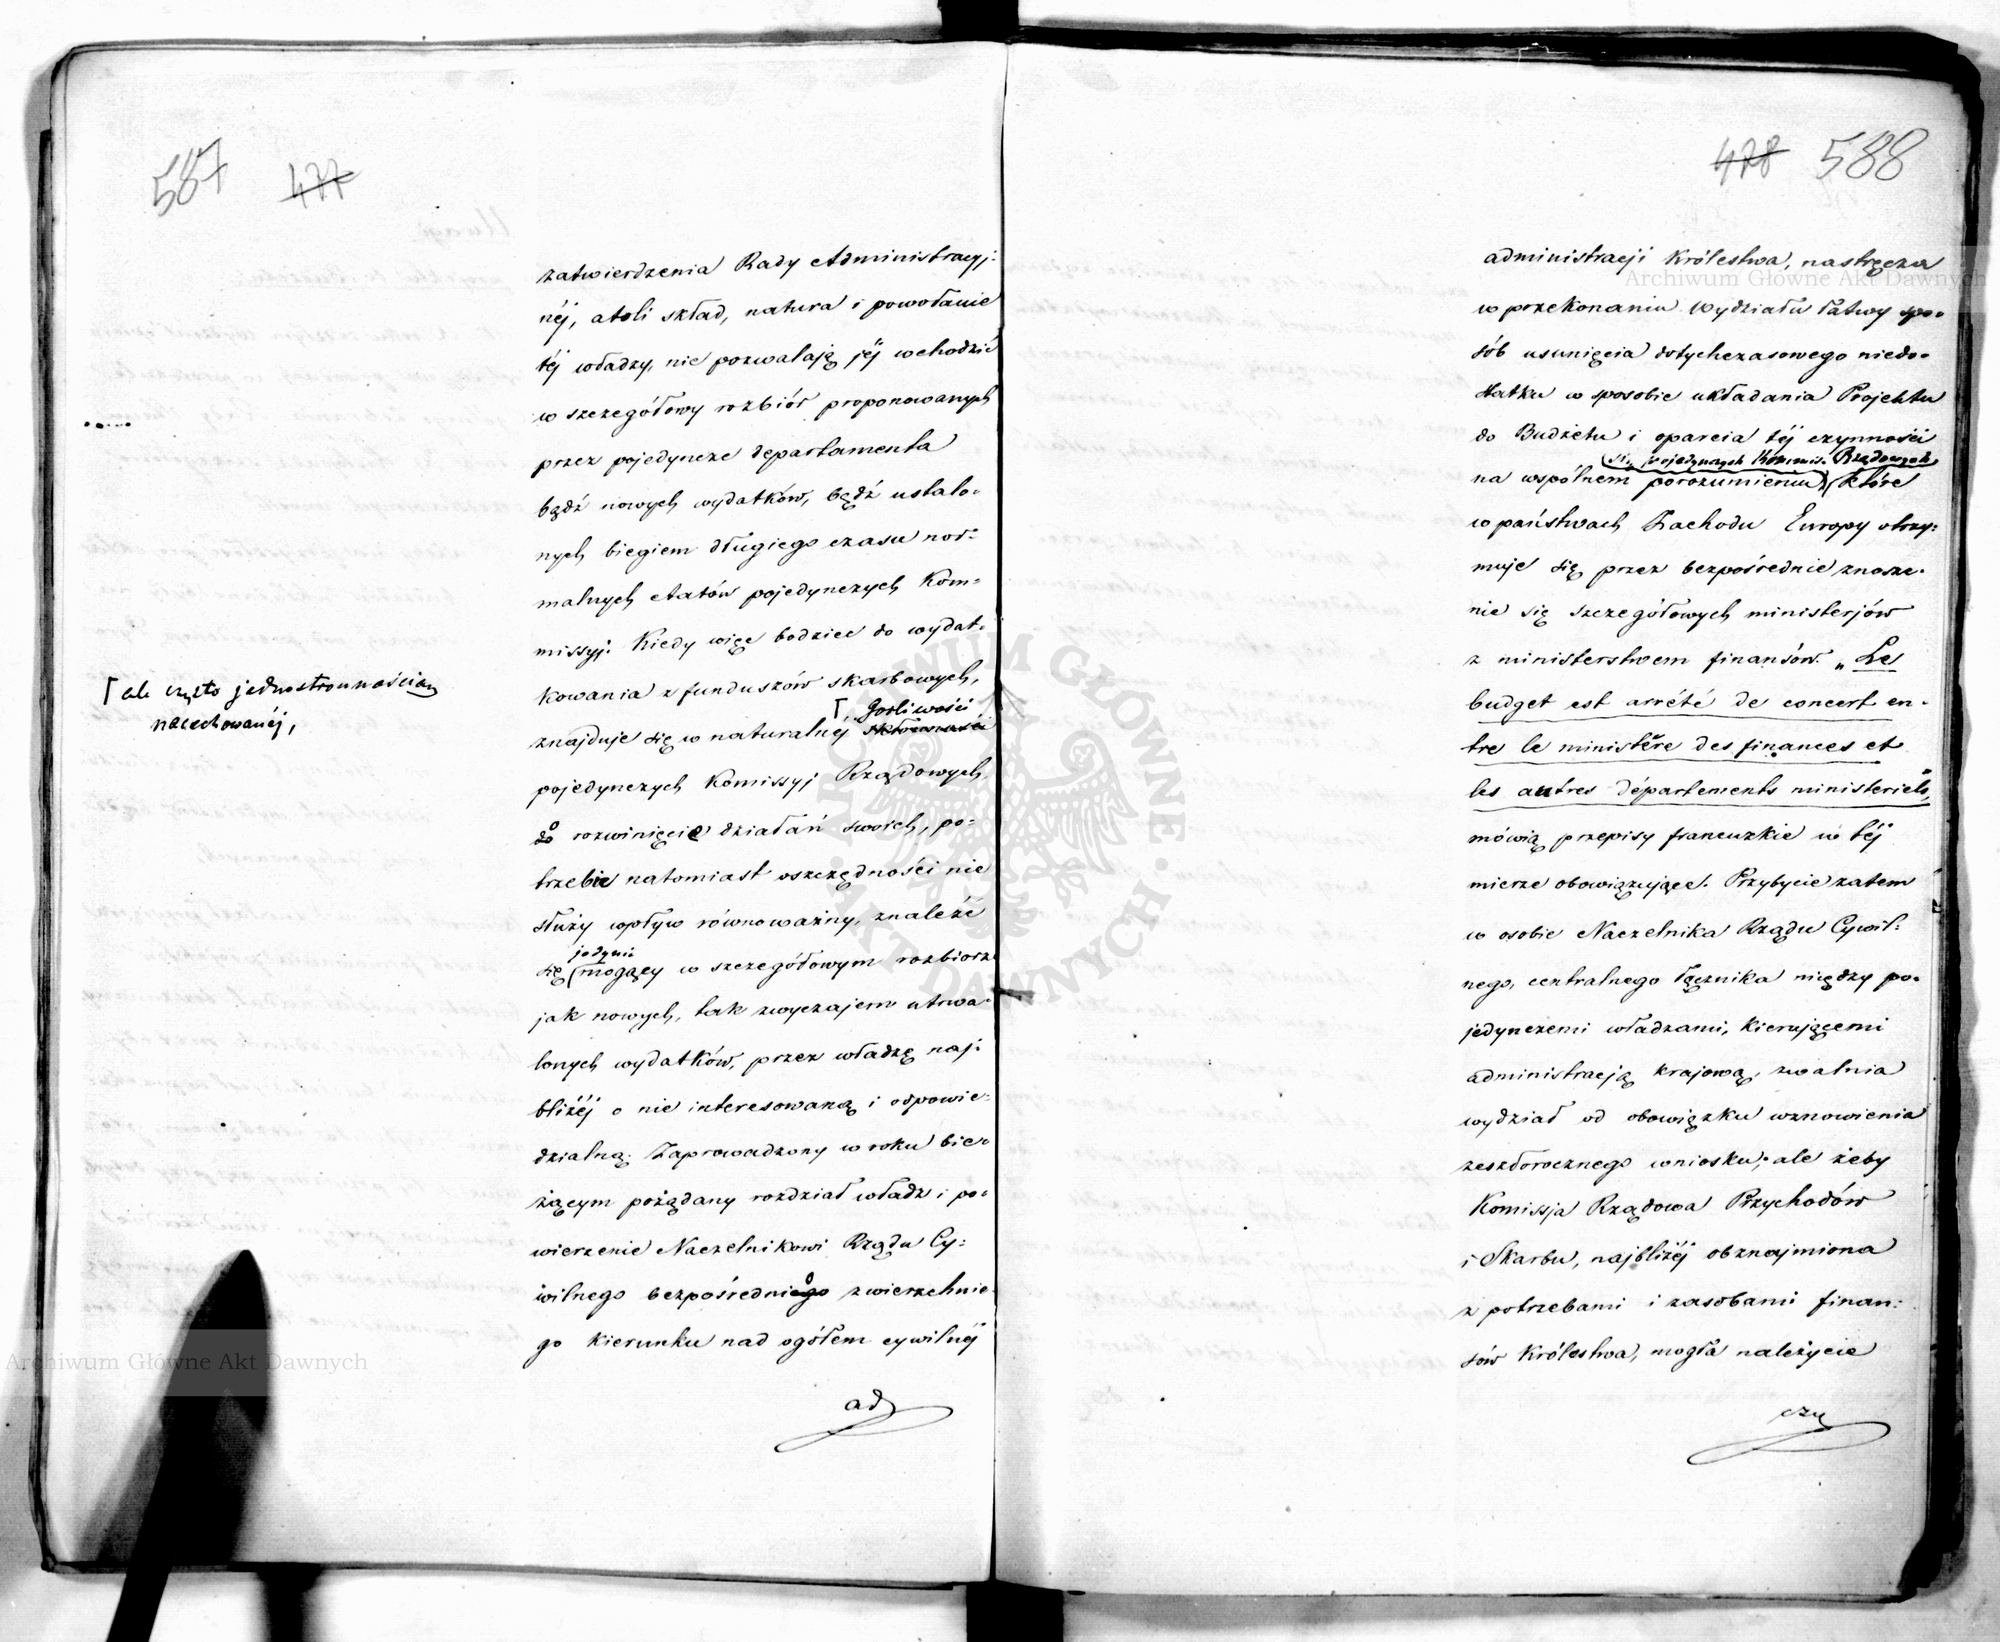 587 477
zatwierdzenia Rady Administracyj:
néj, atoli skład, natura i powołanie
téj władzy, nie pozwalają jéj wchodzić
w szczegółowy rozbiór proponowanych
przez pojedyncze departamenta
bądź nowych wydatków, bądź ustalo-
nych biegiem długiego czasu nor-
malnych etatów pojedynczych Kom-
missyj. Kiedy więc bodziec do wydat-
kowania z funduszów skarbowych,
⌈ ale często jednostronnością
nacechowanéj,
⌈, gorliwości
znajduje się w naturalnéj skłonności
pojedynczych Komissyj Rządowych,
do rozwinięcia działań swoich, po-
trzebie natomiast oszczędności nie
służy wpływ równoważny, znaleźć
jedynie
się (mogący w szczegółowym rozbiorze
jak nowych, tak zwyczajem utrwa-
lonych wydatków, przez władzę naj-
bliżéj o nie interesowaną i odpowie-
dzialną. Zaprowadzony w roku bie-
żącym pożądany rozdział władz i po-
wierzenie Naczelnikowi Rządu Cy:
wilnego bezpośredniego zwierzchnie-
go kierunku nad ogółem cywilnéj
ad
478 588
administracji Królestwa, nastręcza
w przekonaniu Wydziału łatwy spo-
sób usunięcia dotychczasowego niedo-
statku w sposobie układania Projektu
do Budżetu i oparcia téj czynności
(się pojedynczych Kommis: Rządowych
na wspólnem porozumieniu, (które
w państwach Zachodu Europy otrzy:
muje się przez bezpośrednie znosze-
nie się szczegółowych ministerjów
z ministerstwem finansów. „Le
budget est arrété de concert en-
tre le ministère des finances et
les autres départements ministeriels,
mówią przepisy francuzkie w téj
mierze obowiązujące. Przybycie zatem
w osobie Naczelnika Rządu Cywil:
nego, centralnego łącznika między po-
jedynczemi władzami, kierującemi
administracją krajową, zwalnia
wydział od obowiązku wznowienia
zeszłorocznego wniosku; ale żeby
Komissja Rządowa Przychodów
i Skarbu, najbliżéj obznajmiona
z potrzebami i zasobami finan:
sów Królestwa, mogła należycie
czu
Archiwum Główne Akt Dawnych
Archiwum Główne Akt Dawnych
ARCHIWUM GŁÓWNE · AKT DAWNYCH ·